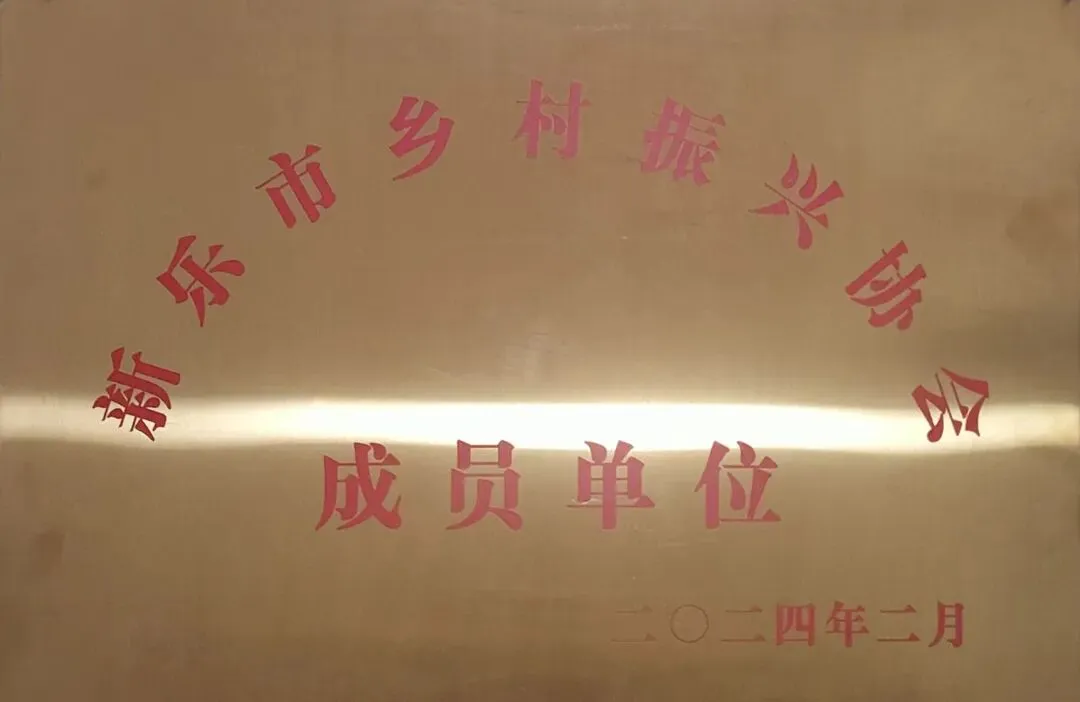 新乐市乡村振兴协会
成员单位
二〇二四年二月